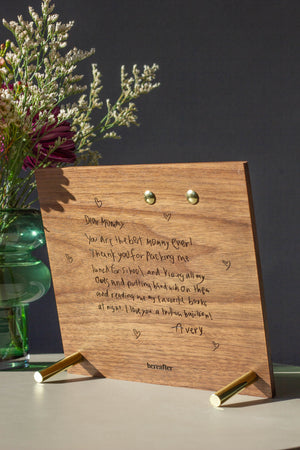 Dear Mommy
You are the best mommy ever!
Thank you for packing me
lunch for school, and kissing all my
Owts and putting band aids on them
and reading me my favorite books
at night. I love you a trillion bajillion!
-Avery
hereafter